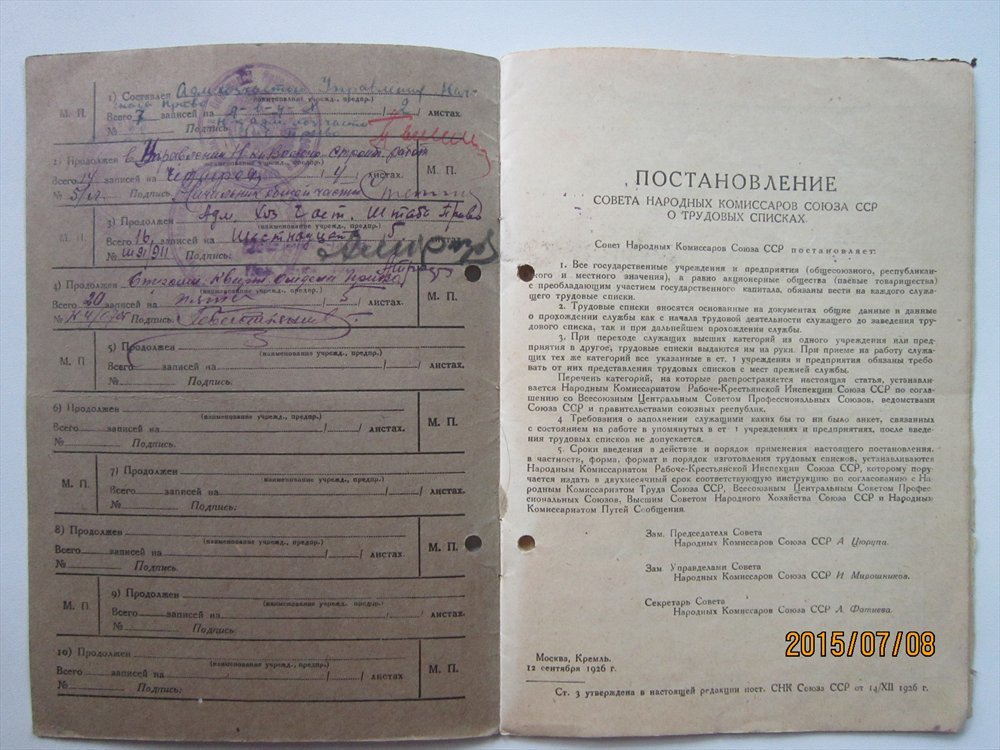 1) Составлен Адм.
(наименование учрежд., предпр.)
М. П. Всего 7 записей на 2 листах.
№ Подпись
2) Продолжен в Управлении
(наименование учрежд., предпр.)
Всего 14 записей на 4 листах. М. П.
№ Подпись. Начальник общей части
3) Продолжен Адм. Хоз Част. Штаба
(наименование учрежд., предпр.)
М. П. Всего 16 записей на Шестнадцати 5 листах.
№ Подпись
4) Продолжен
(наименование учрежд., предпр.)
Всего 20 записей на 5 листах. М. П.
№ Подпись.
5) Продолжен
(наименование учрежд., предпр.)
М. П. Всего записей на / / листах.
№ Подпись.
6) Продолжен
(наименование учрежд., предпр.)
Всего записей на / / листах. М. П.
№ Подпись.
7) Продолжен
(наименование учрежд., предпр.)
М. П. Всего записей на / / листах.
№ Подпись.
8) Продолжен
(наименование учрежд., предпр.)
Всего записей на / / листах. М. П.
№ Подпись.
9) Продолжен
(наименование учрежд., предпр.)
М. П. Всего записей на / / листах.
№ Подпись.
10) Продолжен
(наименование учрежд., предпр.)
Всего записей на / / листах. М. П.
№ Подпись:
ПОСТАНОВЛЕНИЕ
СОВЕТА НАРОДНЫХ КОМИССАРОВ СОЮЗА ССР
О ТРУДОВЫХ СПИСКАХ.
Совет Народных Комиссаров Союза ССР постановляет:
1. Все государственные учреждения и предприятия (общесоюзного, республикан-
ского и местного значения), а равно акционерные общества (паевые товарищества)
с преобладающим участием государственного капитала, обязаны вести на каждого служа-
щего трудовые списки.
2. Трудовые списки вносятся основанные на документах общие данные и данные
о прохождении службы как с начала трудовой деятельности служащего до заведения тру-
дового списка, так и при дальнейшем прохождении службы.
3. При переходе служащих высших категорий из одного учреждения или пред-
приятия в другое, трудовые списки выдаются им на руки. При приеме на работу служа-
щих тех же категорий все указанные в ст. 1 учреждения и предприятия обязаны требо-
вать от них представления трудовых списков с мест прежней службы.
Перечень категорий, на которые распространяется настоящая статья, устанавли-
вается Народным Комиссариатом Рабоче-Крестьянской Инспекции Союза ССР по согла-
шению со Всесоюзным Центральным Советом Профессиональных Союзов, ведомствами
Союза ССР и правительствами союзных республик.
4 Требования о заполнении служащими каких бы то ни было анкет, связанных
с состоянием на работе в упомянутых в ст 1 учреждениях и предприятиях, после введе-
ния трудовых списков не допускается.
5. Сроки введения в действие и порядок применения настоящего постановления,
в частности, форма, формат и порядок изготовления трудовых списков, устанавливаются
Народным Комиссариатом Рабоче-Крестьянской Инспекции Союза ССР, которому пору-
чается издать в двухмесячный срок соответствующую инструкцию по согласованию с На-
родным Комиссариатом Труда Союза ССР, Всесоюзным Центральным Советом Профес-
сиональных Союзов, Высшим Советом Народного Хозяйства Союза ССР и Народным
Комиссариатом Путей Сообщения.
Зам. Председателя Совета
Народных Комиссаров Союза ССР А Цюрупа.
Зам Управделами Совета
Народных Комиссаров Союза ССР И Мирошников.
Секретарь Совета
Народных Комиссаров Союза ССР Л. Фотиева.
Москва, Кремль.
12 сентября 1926 г.
Ст. 3 утверждена в настоящей редакции пост. СНК Союза ССР от 14/XII 1926 г.
2015/07/08